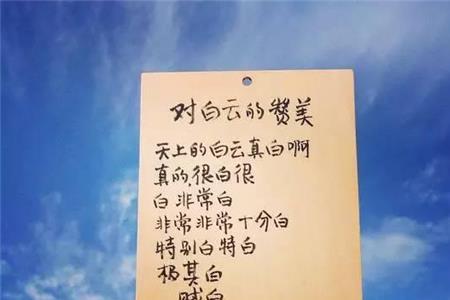 对白云的赞美
天上的白云真白啊
真的,很白很
白 非常白
非常非常十分白
特别白特白
极其白
贼白